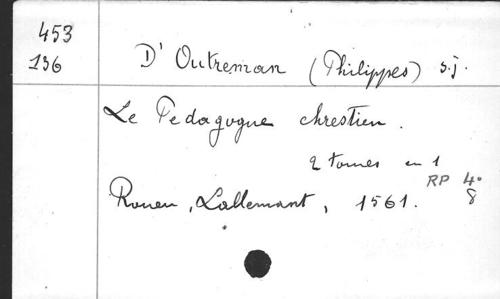 453
136
D' Outreman (Philippes) s.j.
Le Pedagogue chrestien.
2 tomes en 1
RP 4°
8
Rouen, Lallemant, 1561.